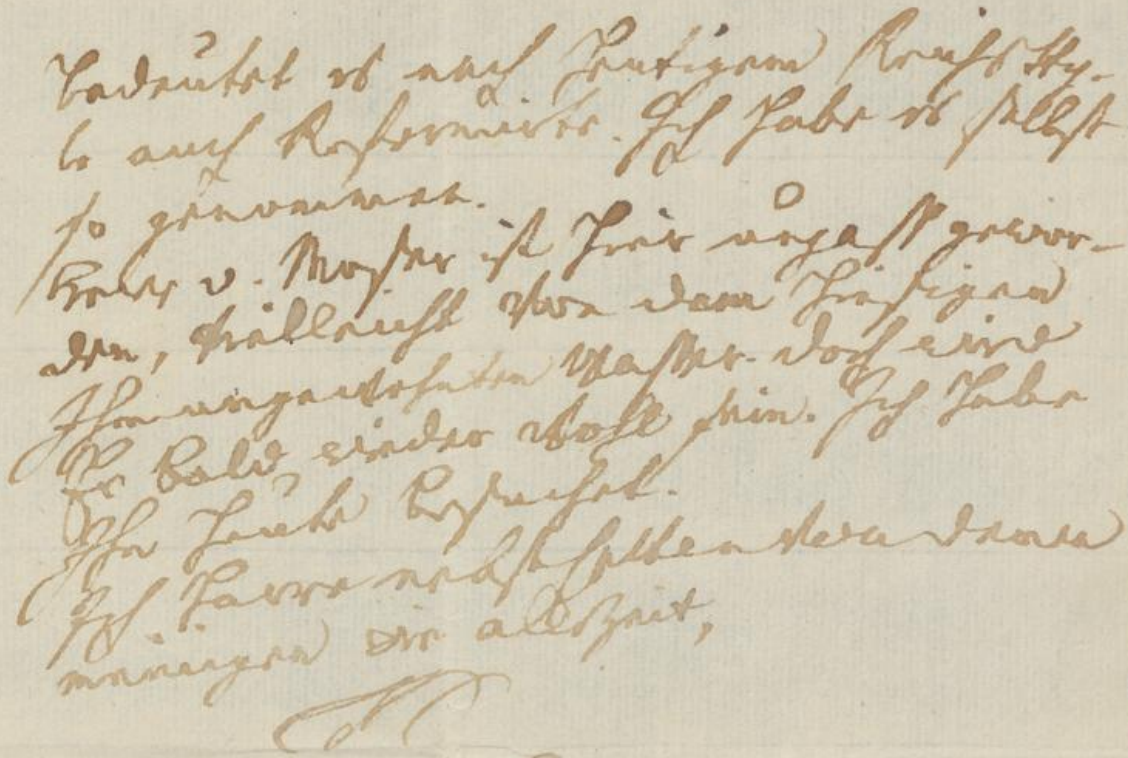 bedeutet es nach heutigem Reichs Sty-
le auch Reformirte. Ich habe es selbst
so genommen.
Herr v. Moser ist hier unpass gewor-
den, vielleicht von dem hiesigen
Ihm ungewohnten Wasser. doch wird
Er bald wieder wohl sein. Ich habe
Ihn heute besuchet.
Ich harre nebst von denen
meinigen wie allezeit,